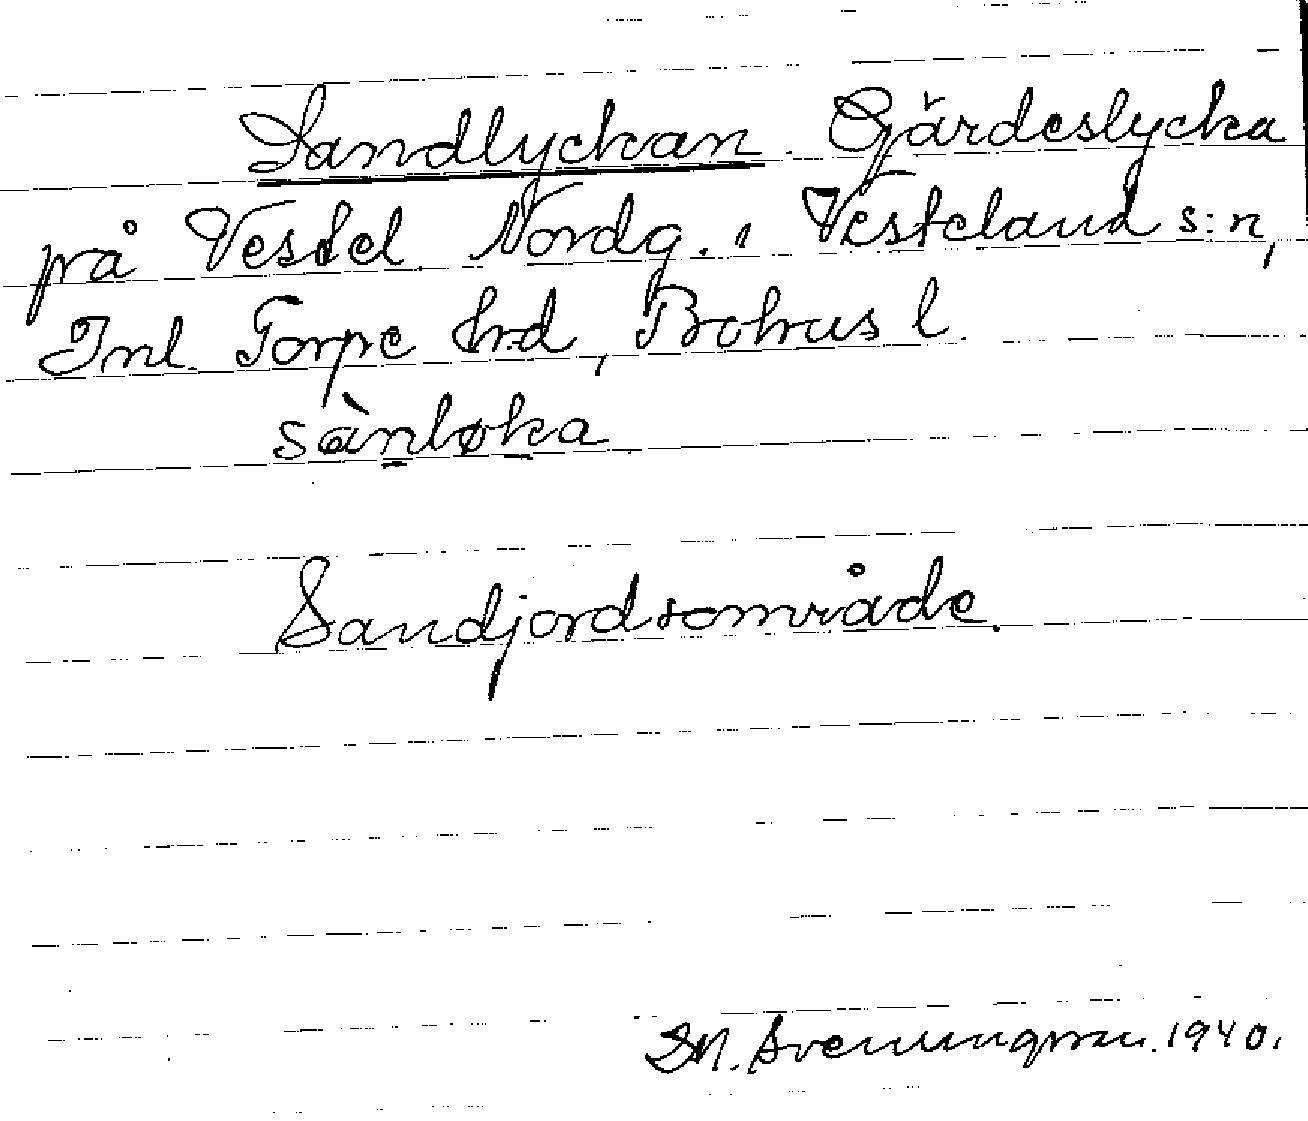 Sandlyckan. Gärdeslycka
på Vestel. Nordg. i Vesteland s:n,
Inl. Torpe hrd, Bohus l.
sànløka
Sandjordsområde.
1940.